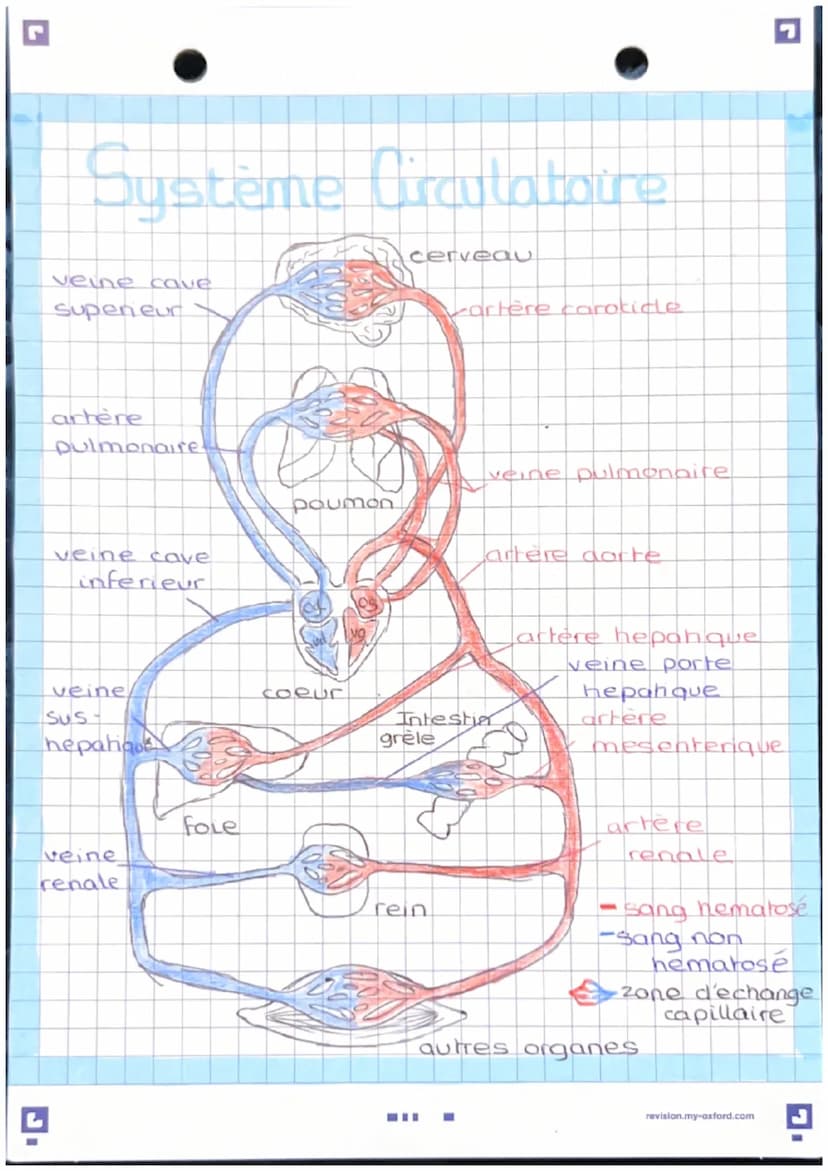 Système Circulatoire
cerveau
veine cave
superieur
artère carotide
artère
pulmonaire
veine pulmonaire
poumon
veine cave
inferieur
artère aorte
od
og
vd
vg
artère hepatique
veine porte
hepatique
coeur
veine
sus-
hepatique
Intestin
grèle
artère
mesenterique
foie
artère
renale
veine
renale
rein
sang hematosé
sang non
hematosé
zone d'echange
capillaire
autres organes
revision.my-oxford.com